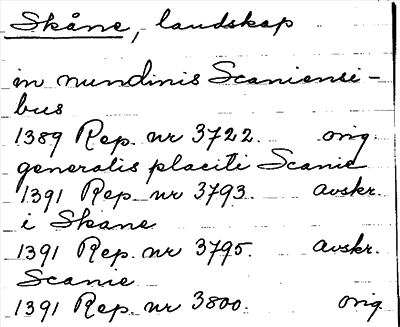 Skåne, landskap
in nundinis Scaniensi-
bus
1389 Rep. nr 3722. orig.
generalis placiti Scanie
1391 Rep. nr 3793. avskr.
i Skane
1391 Rep. nr 3795. avskr.
Scanie
1391 Rep. nr 3800. orig.